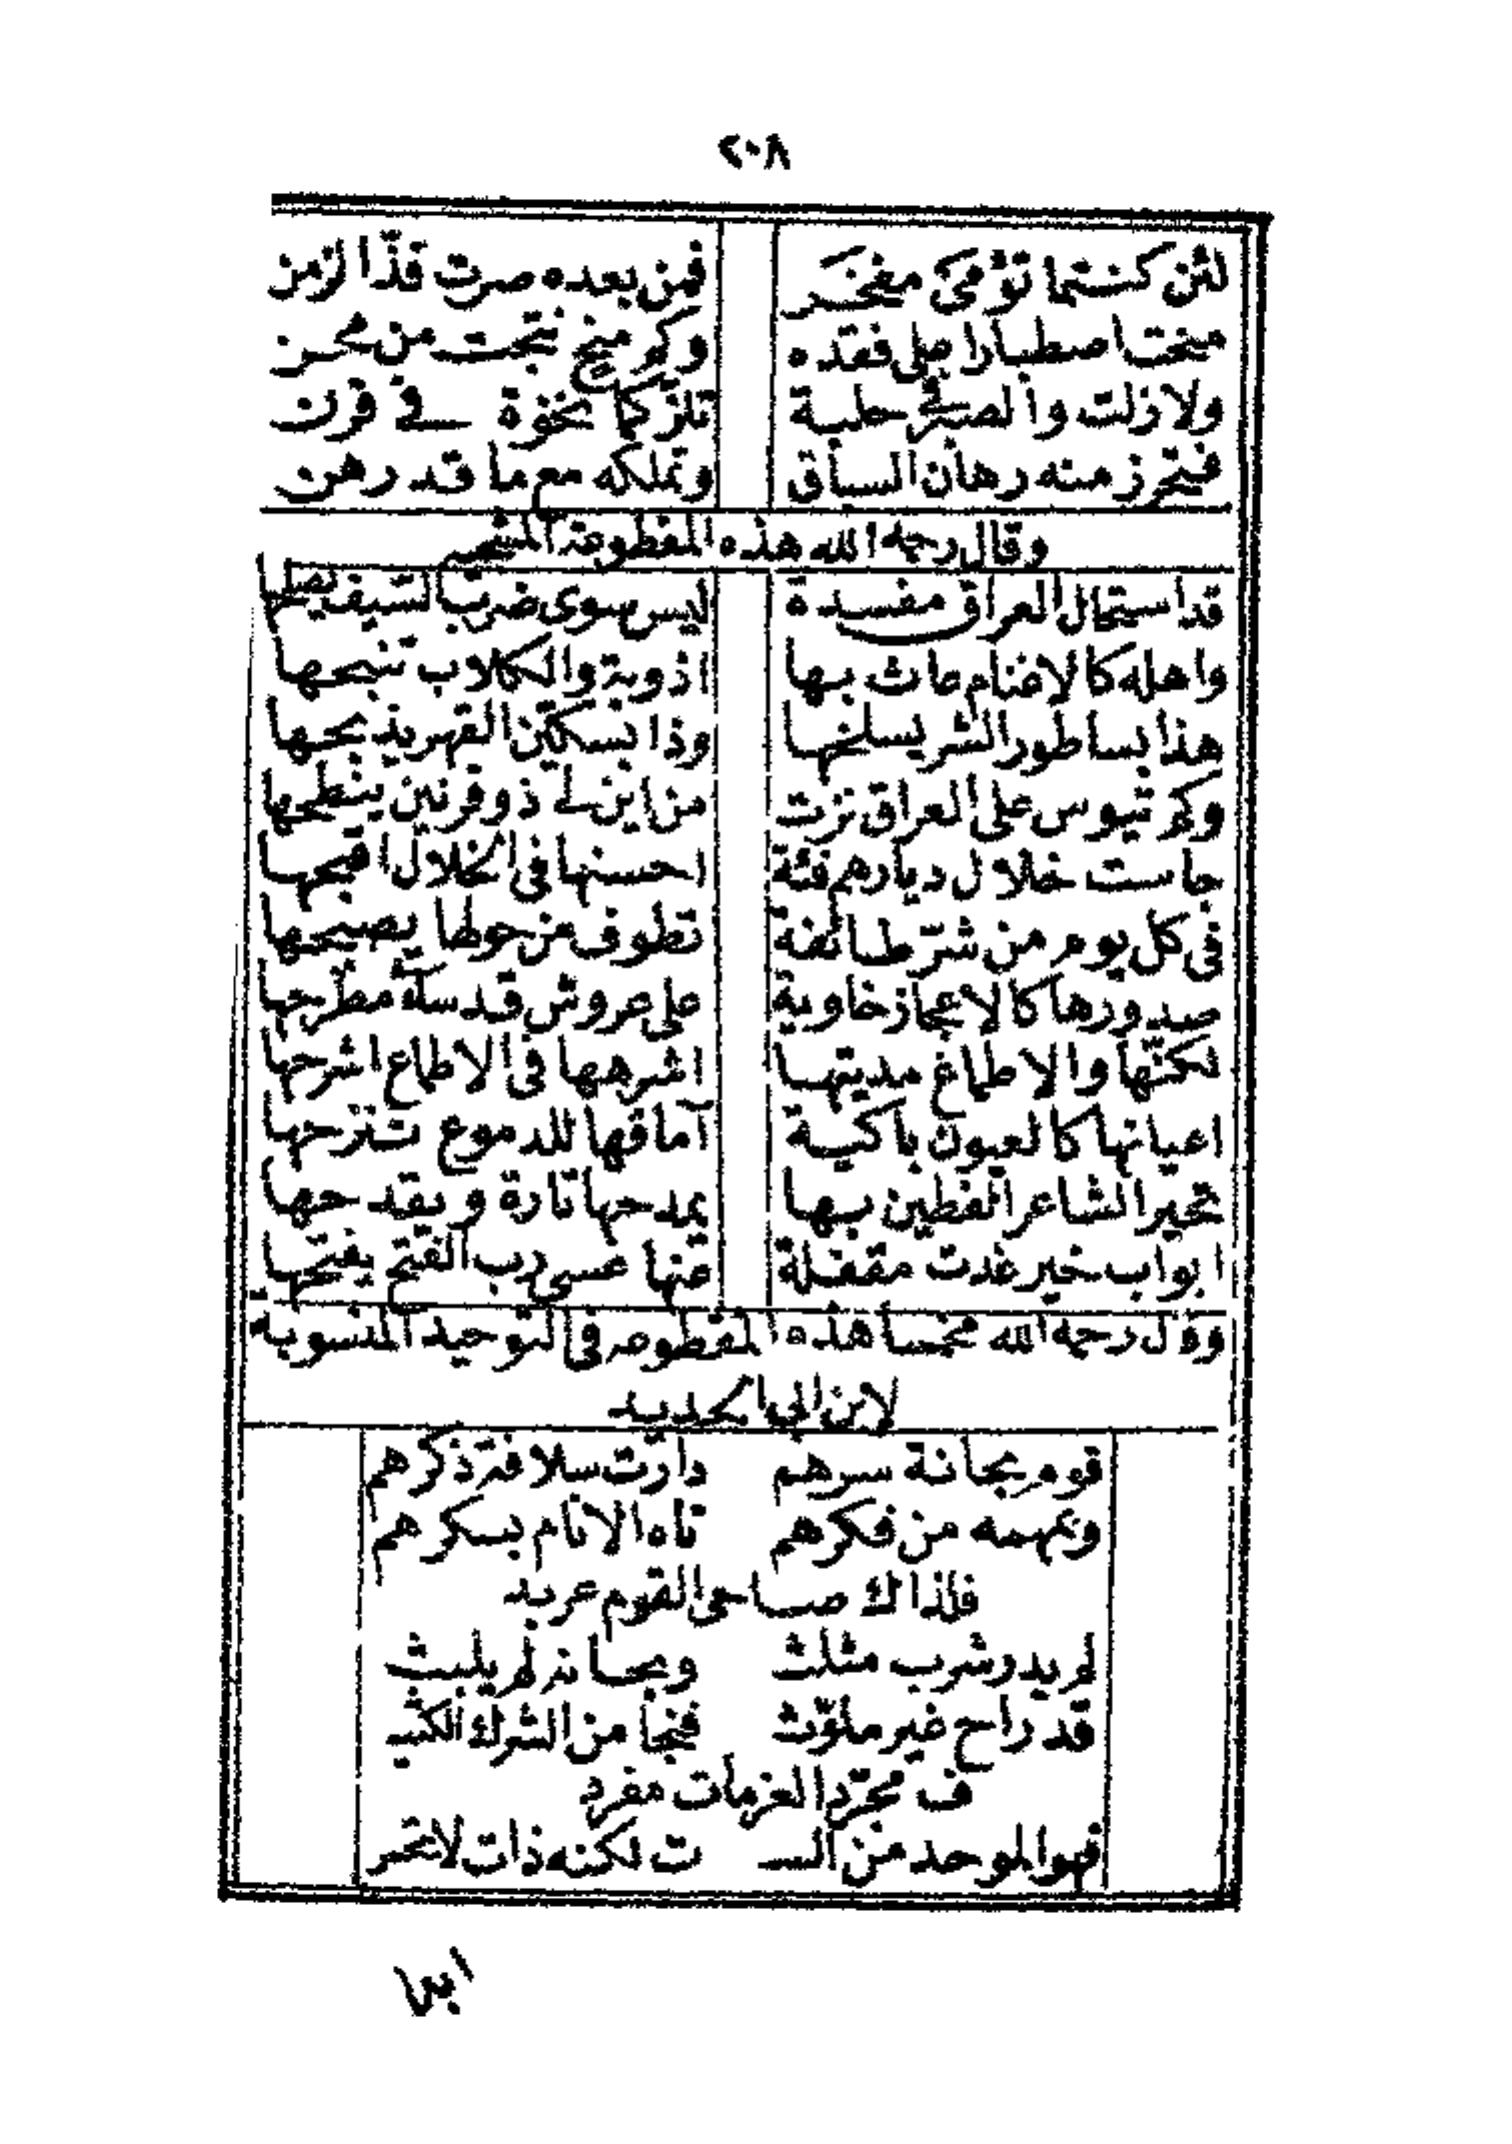 ٢٠٨
لئن كنتما توءمى مفخر فمن بعده صرت فذّا لزمن
منحت اصطبارا على فقده وكم منح نتجت من محن
ولا زلت وألصبر فى حلبة تلز كما بخوة فى قرن
فتحرز منه رهان السباق وتملكه مع ما قد رهن
وقال رحمه الله هذه المقطوعة
قد استحال العراق مفسدة ليس سوى ضرب السيف يصلحها
واهله كالاغنام عاث بها اذوبة والكلاب تنبحها
هذا بساطور الشر يسلخها وذا بسكين القهر يذبحها
وكم تيوس على العراق نزت من اين لى ذو قرنين ينطحها
جاست خلال ديارهم فئة احسنها فى الخلال اقبحها
فى كل يوم من شرّ طائفة تطوف من حولها يصبحها
صدورها كالاعجاز خاوية على عروش قد سآء مطرحها
لكنّها والاطماع مديتها اشرهها فى الاطماع اشرحها
اعيانها كالعيون باكية آماقها للدموع تنزحها
تحير الشاعر الفطين بها يمدحها تارة ويقدحها
ابواب خير غدت مقفلة عنها عسى رب الفتح يفتحها
وقال رحمه الله مخمسا هذه المقطوعه فى التوحيد المنسوبة
لابن ابى الحديد
قوم بحانة سرهم دارت سلافة ذكرهم
وبمهمه من فكرهم تاه الانام بسكرهم
فلذاك صاحى القوم عربد
لم يدر شرب مثلث وبحانة لم يلبث
قد راح غير ملوّث فنجا من الشرك الكثيـ
ف مجرّد العزمات مفرد
فهو الموحد من السـ ت لكنه ذات لا تحر